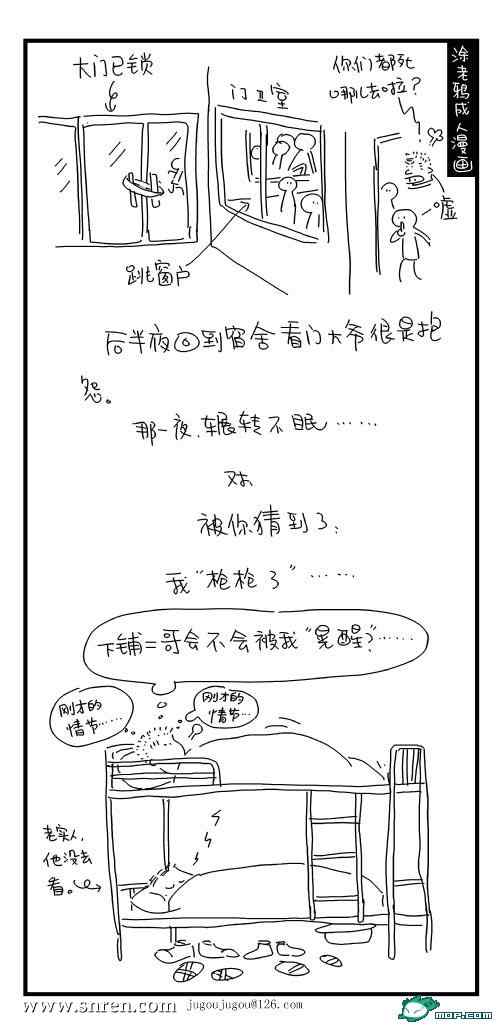 涂老鸦成人漫画
大门已锁
门卫室
你们都死
哪儿去啦？
嘘
跳窗户
后半夜回到宿舍看门大爷很是抱
怨。
那一夜，辗转不眠……
对，
被你猜到了，
我“枪枪了”……
下铺二哥会不会被我“晃醒？”……
刚才的
情节……
刚才的
情节…
老实人，
他没去
看。
www.snren.com jugoujugou@126.com
MOP.COM